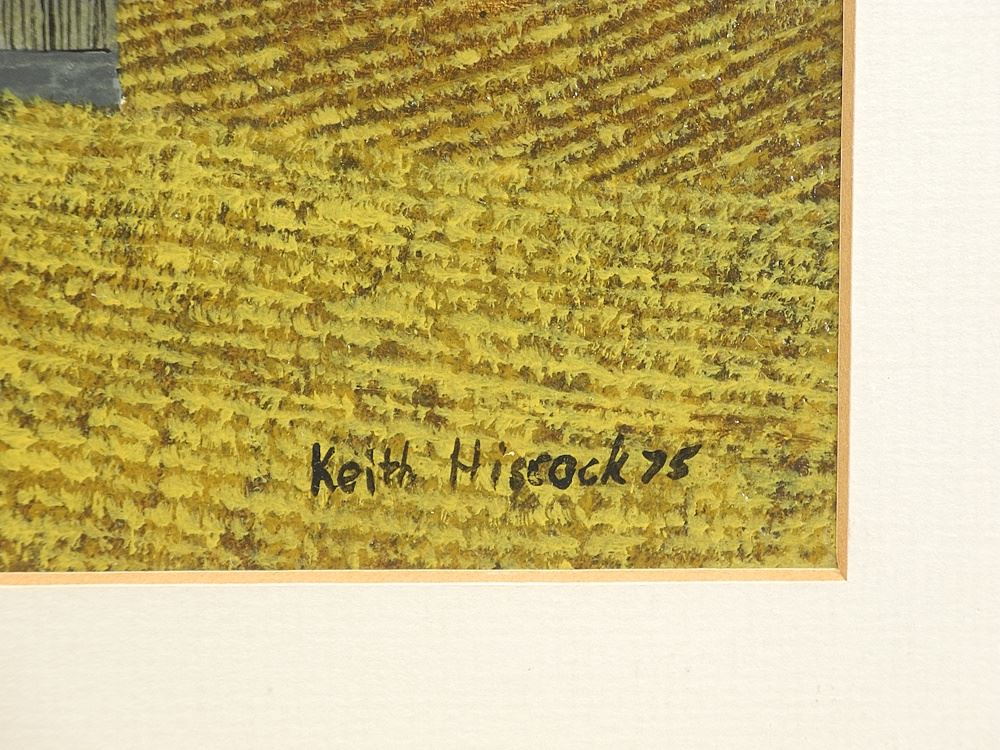 Keith Hiscock 75